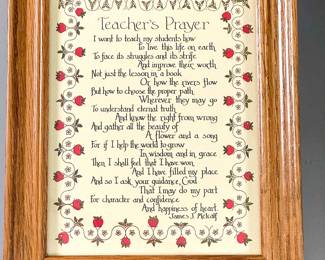 Teacher's Prayer
I want to teach my students how
To live this life on earth,
To face its struggles and its strife
And improve their worth.
Not just the lesson in a book
Or how the rivers flow
But how to choose the proper path,
Wherever they may go
To understand eternal truth
And know the right from wrong
And gather all the beauty of
A flower and a song
For if I help the world to grow
In wisdom and in grace
Then, I shall feel that I have won
And I have filled my place
And so I ask your guidance, God
That I may do my part
For character and confidence
And happiness of heart.
James J. Metcalf